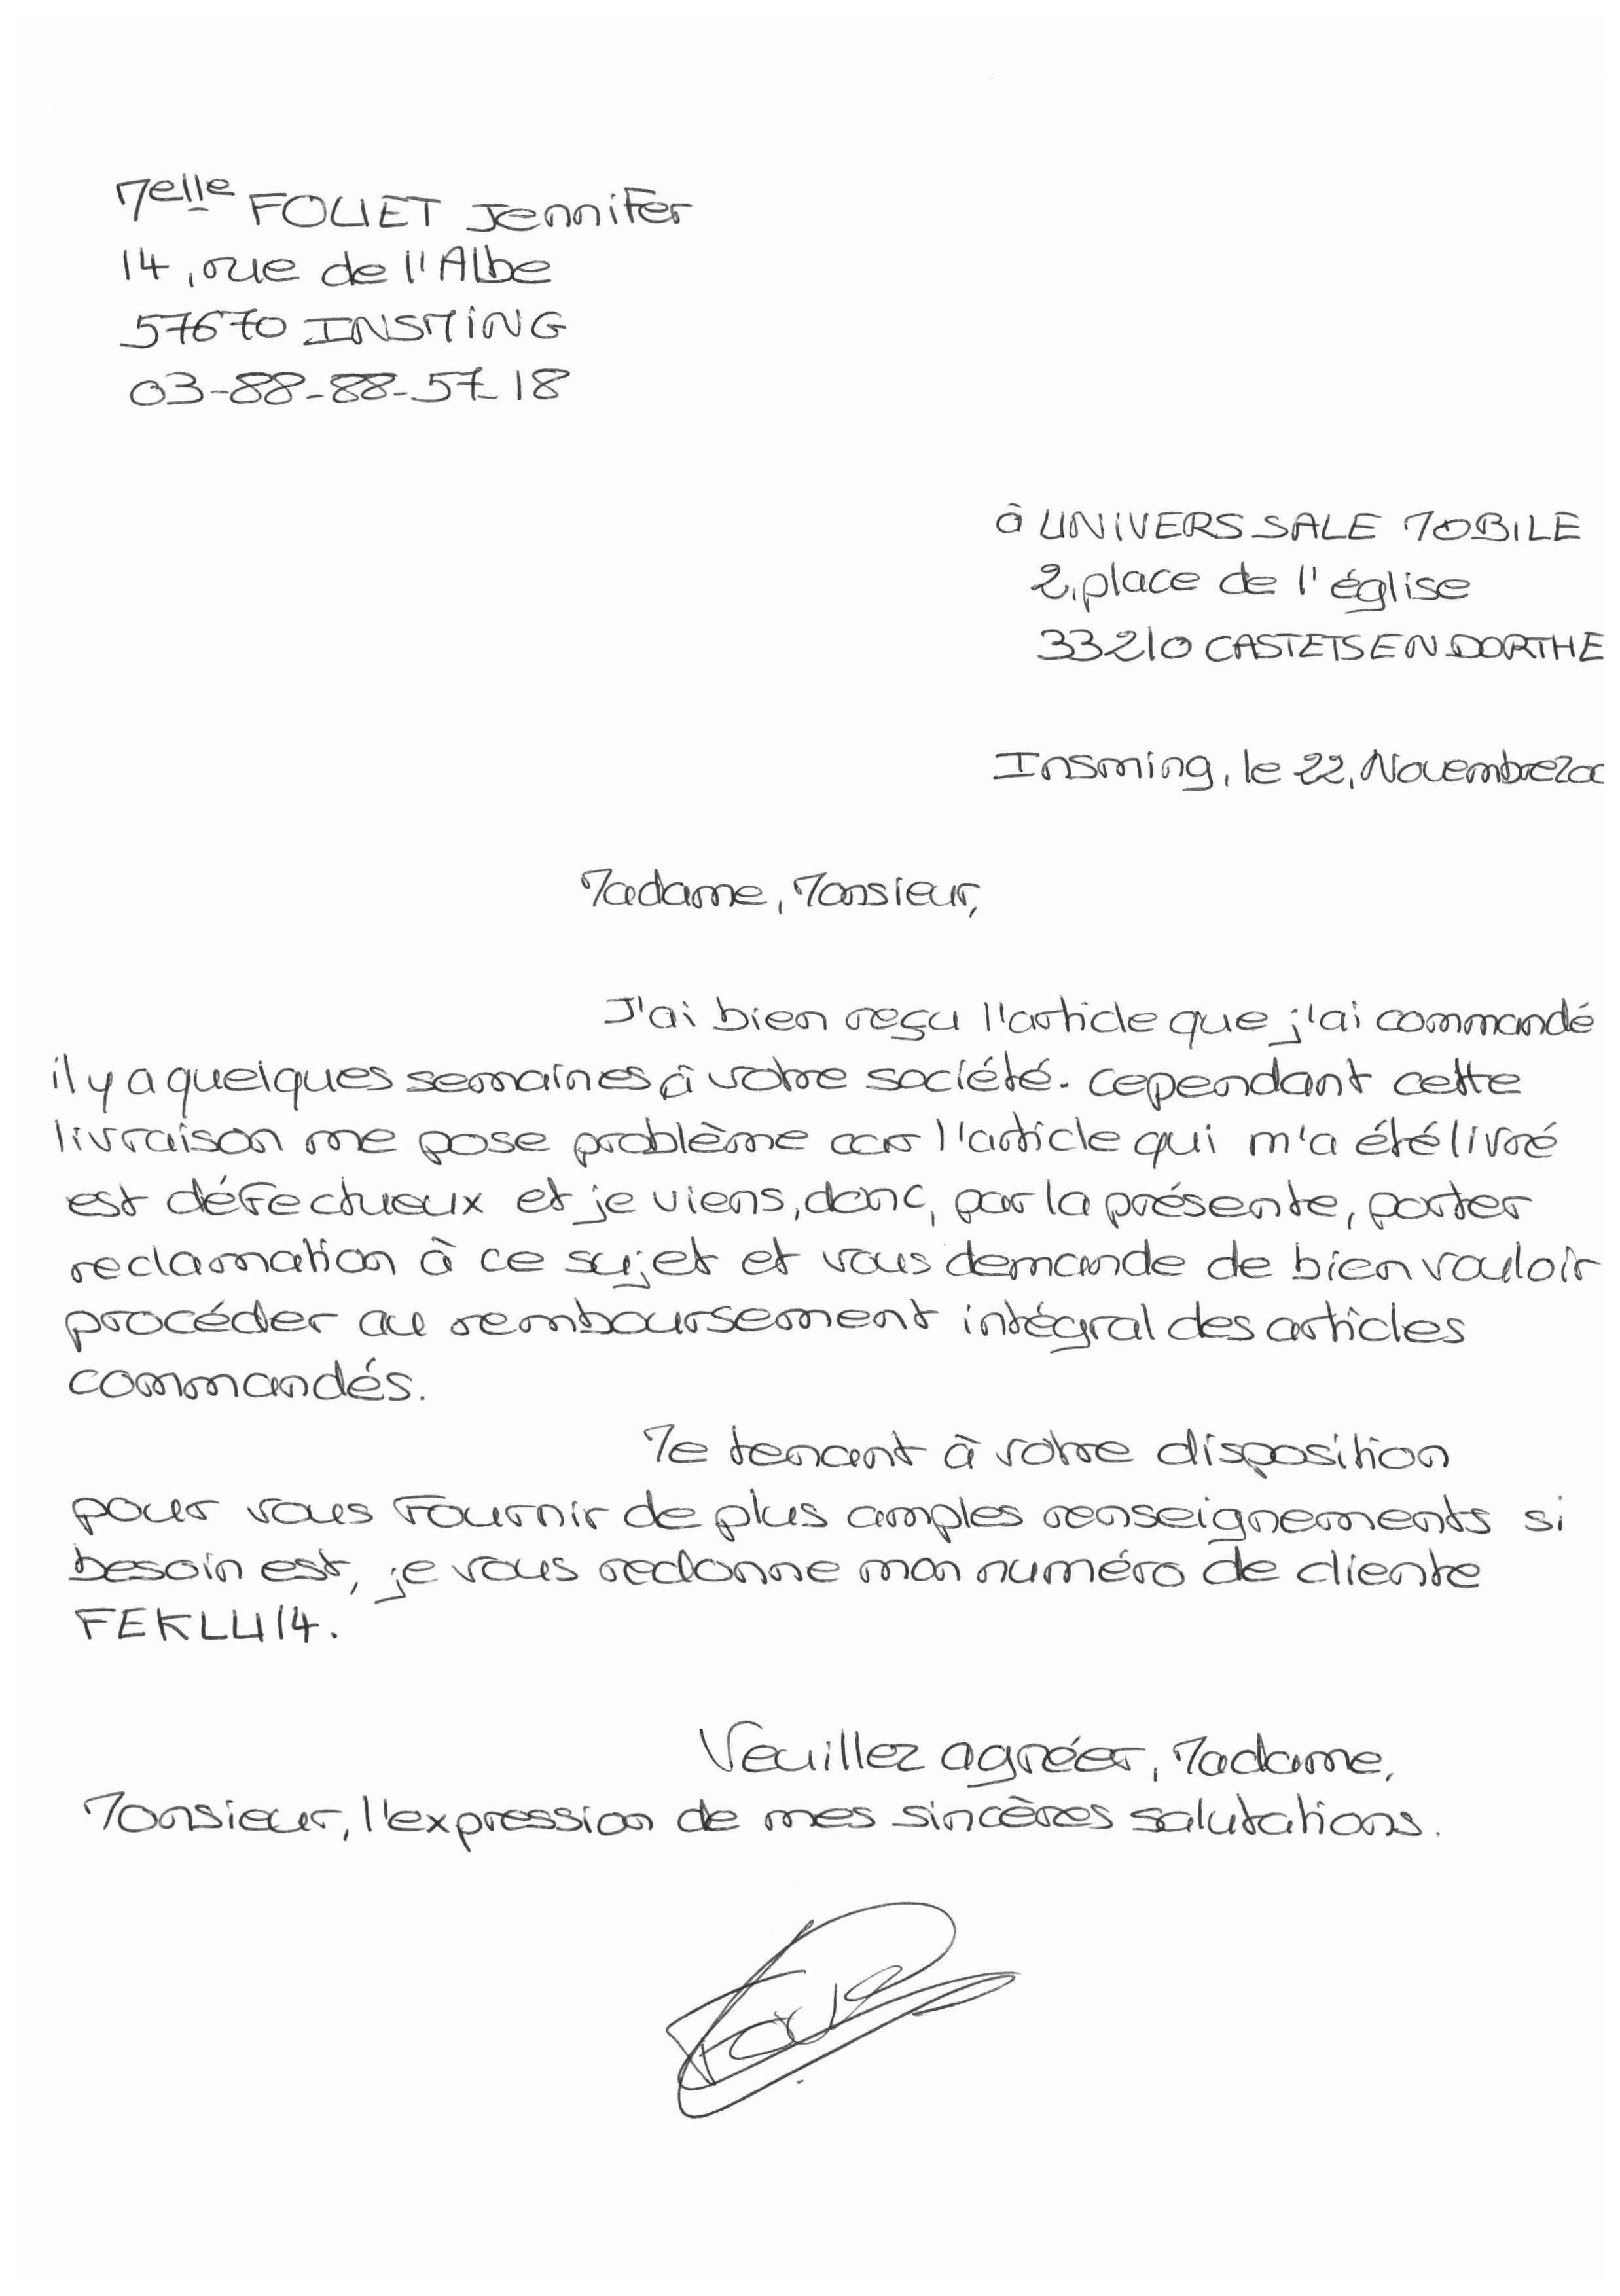 Melle FOUET Jennifer
14, rue de l'Albe
57670 INSMING
03-88-88-57-18
à UNIVERS SALE MOBILE
2, place de l'église
33210 CASTETS EN DORTHE
Insming, le 22, Novembre 200
Madame, Monsieur,
J'ai bien reçu l'article que j'ai commandé
il y a quelques semaines à votre société. Cependant cette
livraison me pose problème car l'article qui m'a été livré
est défectueux et je viens, donc, par la présente, porter
reclamation à ce sujet et vous demande de bien vouloir
procéder au remboursement intégral des articles
commandés.
Me tenant à votre disposition
pour vous fournir de plus amples renseignements si
besoin est, je vous redonne mon numéro de cliente
FEKLU14.
Veuillez agréer, Madame,
Monsieur, l'expression de mes sincères salutations.